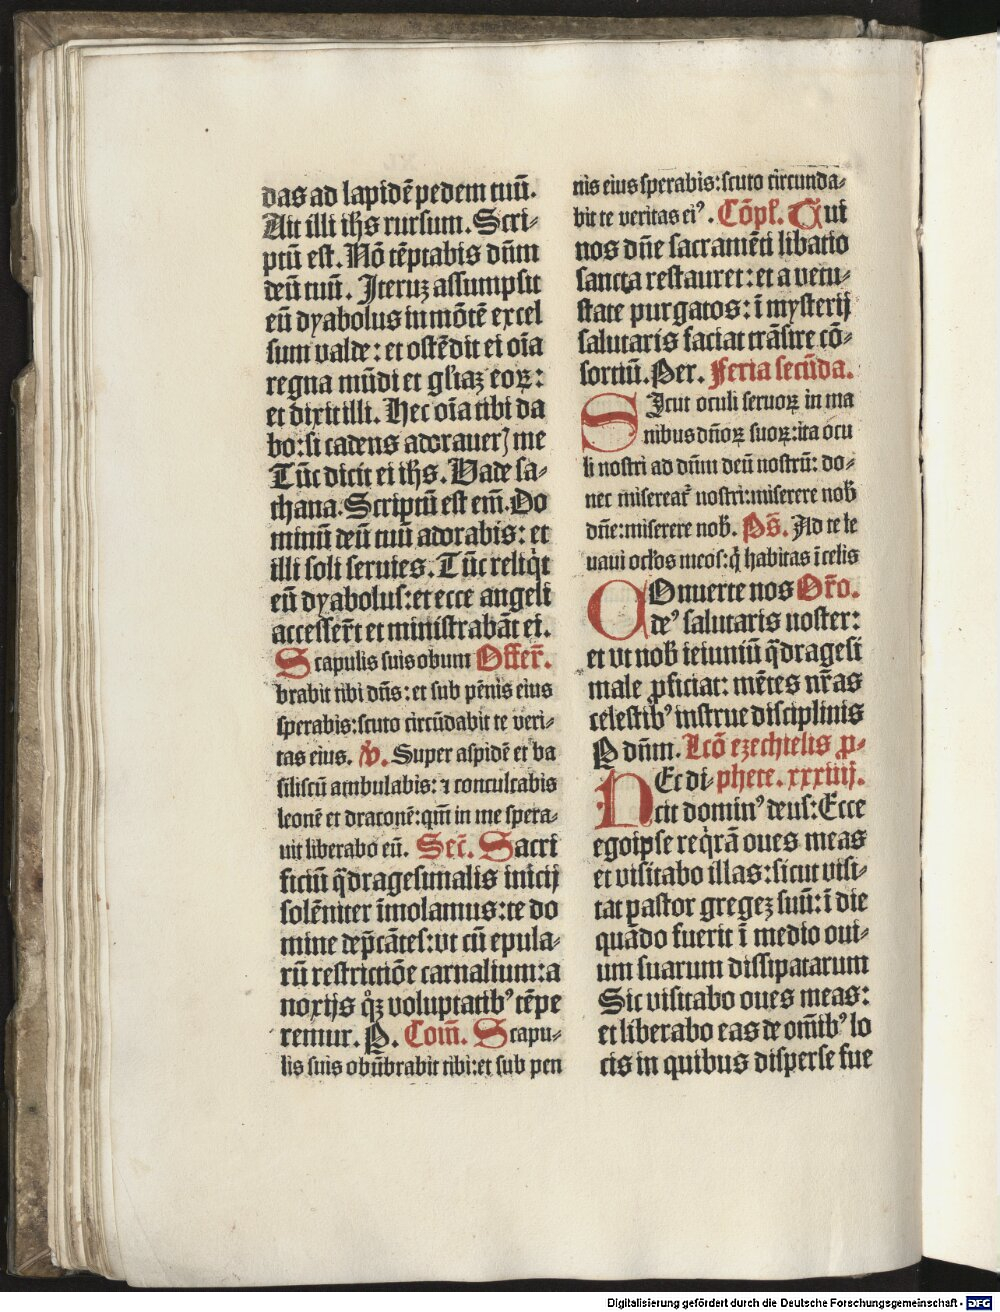 das ad lapidē pedem tuū.
Ait illi ihs rursum. Scri-
ptū est. Nō tēptabis dn̄m
deū tuū. Iteruꝫ assumpsit
eū dyabolus in mōtē excel
sum valde: et ostēdit ei oīa
regna mūdi et gl'iaꝫ eoꝝ:
et dixit illi. Hec oīa tibi da
bo: si cadens adorauerꝭ me
Tūc dicit ei ihs. Uade sa-
thana. Scriptū est em̄. Do
minū deū tuū adorabis: et
illi soli seruies. Tūc reliqͥt
eū dyabolus: et ecce angeli
accesser̄t et ministrabāt ei.
Scapulis suis obum Offer̄.
brabit tibi dn̄s: et sub pēnis eius
sperabis: scuto circūdabit te veri-
tas eius. ℣. Super aspidē et ba
siliscū ambulabis: ⁊ conculcabis
leonē et draconē: qm̄ in me spera-
uit liberabo eū. Sec̄. Sacri
ficiū q̄dragesimalis inicij
solēniter īmolamus: te do
mine dep̄cātes: vt cū epula-
rū restrictiōe carnalium: a
noxijs qͦꝫ voluptatibꝰ tēpe
remur. P̲. Com̄. Scapu-
lis suis obūbrabit tibi: et sub pen
nis eius sperabis: scuto circunda-
bit te veritas eiꝰ. Cōpl'. Tui
nos dn̄e sacramēti libatio
sancta restauret: et a vetu-
state purgatos: ī mysterij
salutaris faciat trāsire cō-
sortiū. Per. Feria secūda.
SIcut oculi seruoꝝ in ma
nibus dn̄oꝝ suoꝝ: ita ocu
li nostri ad dn̄m deū nostrū: do-
nec misereat᷑ nostri: miserere nob̄
dn̄e: miserere nob̄. Ps̄. Ad te le
uaui oc'los meos: q̄ habitas ī celis
COnuerte nos Or̄o.
deꝰ salutaris noster:
et vt nob̄ ieiuniū q̄dragesi
male ꝓficiat: mētes nr̄as
celestibꝰ instrue disciplinis
P̲ dn̄m. Lcō ezechielis ꝓ-
HEc di- phete. xxxiiij.
cit dominꝰ deus: Ecce
ego ipse reqͥrā oues meas
et visitabo illas: sicut visi-
tat pastor gregeꝫ suū: ī die
quādo fuerit ī medio oui-
um suarum dissipatarum
Sic visitabo oues meas:
et liberabo eas de om̄ibꝰ lo
cis in quibus disperse fue
Digitalisierung gefördert durch die Deutsche Forschungsgemeinschaft - DFG